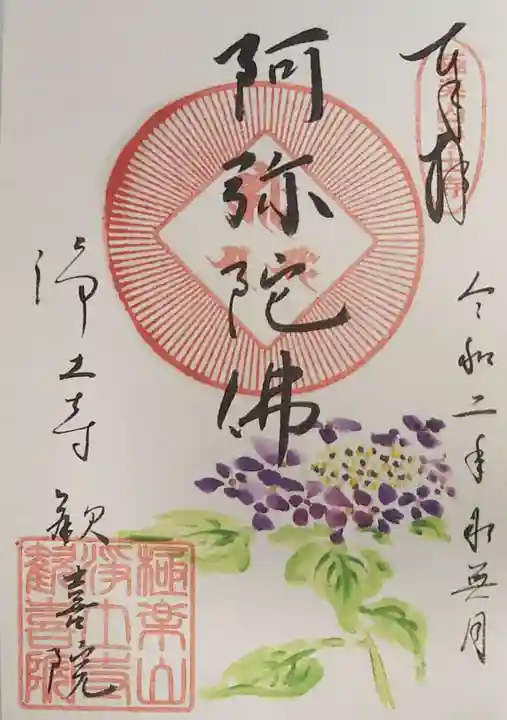 奉拝
令和二年水無月
阿弥陀佛
浄土寺 歓喜院
極楽山
浄土寺
歓喜院